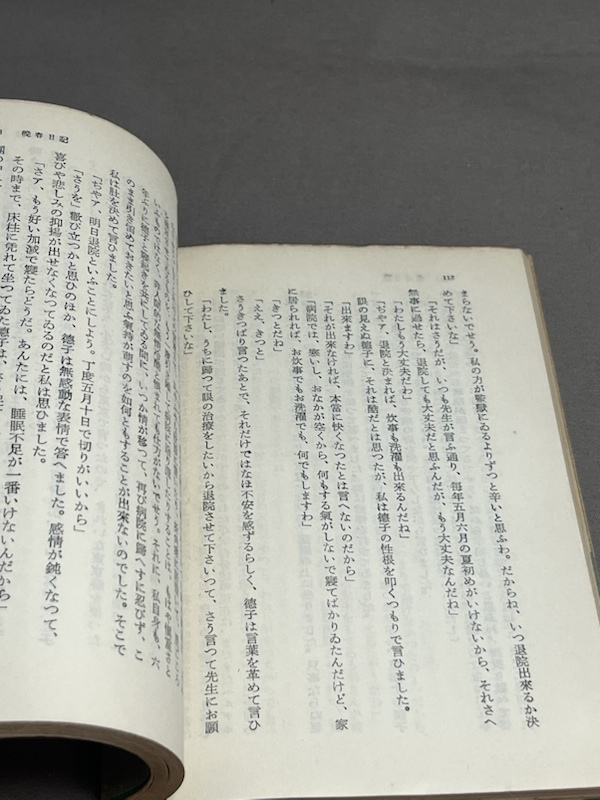 112
まらないでせう、私の方が監獄にゐるよりずつと辛いと思ふわ。だからね、いつ退院出來るか決
めて下さいな」
「それはさうだが、いつも先生が言ふ通り、毎年五月六月の夏初めがいけないから、それさへ
無事に過せたら、退院しても大丈夫だと思ふんだが、もう大丈夫なんだね」
「わたしもう大丈夫だわ」
「ぢやア、退院と決まれば、炊事も洗濯も出來るんだね」
眼の見えぬ德子に、それは酷だとは思つたが、私は德子の性根を叩くつもりで言ひました。
「出來ますわ」
「それが出來なければ、本當に快くなつたとは言へないのだから」
「病院では、寒いし、おなかが空くから、何もする氣がしないで寢てばかりゐたんだけど、家
に居られれば、お炊事でもお洗濯でも、何でもしますわ」
「きつとだね」
「ええ、きつと」
さうきつぱり言つたあとで、それだけではなほ不安を感ずるらしく、德子は言葉を革めて言ひ
ました。
「わたし、うちに歸つて眼の治療をしたいから退院させて下さいつて、さう言つて先生にお願
ひして下さいな」
春日記
年ぶりに德子と寢起きを共にしてゐる間に、いつか情が移つて、再び病院に歸へすに忍びず、こ
のまま引き留めておきたいと思ふ氣持が萌すのを如何ともすることが出來ないのでした。そこで
私は肚を決めて言ひました。
「ぢやア、明日退院といふことにしよう。丁度五月十日で切りがいいから」
「さうを」歡び立つかと思ひのほか、德子は無感動な表情で答へました。感情が鈍くなつて、
喜びや悲しみの抑揚が出せなくなつてゐるのだと私は思ひました。
「さア、もう好い加減で寢たらどうだ。あんたには、睡眠不足が一番いけないんだから」
その時まで、床柱に凭れて坐つてゐた德子は、